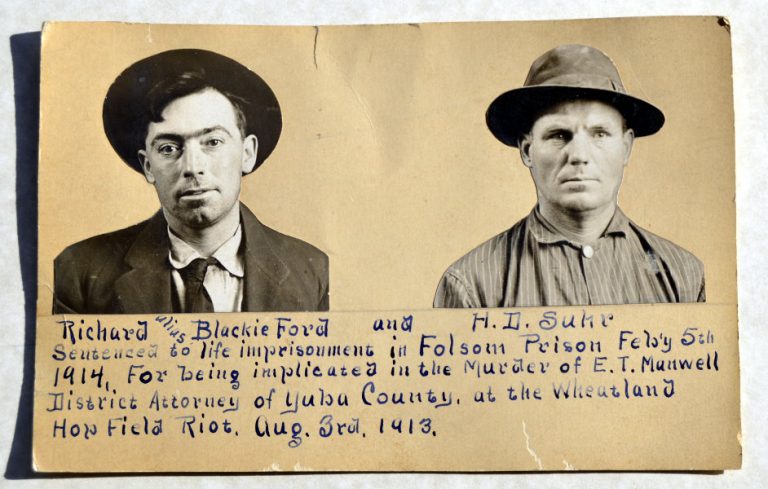 Richard alias Blackie Ford and H. D. Suhr
Sentenced to life imprisonment in Folsom Prison Feb'y 5th
1914, For being implicated in the Murder of E. T. Manwell
District Attorney of Yuba County, at the Wheatland
Hop Field Riot. Aug. 3rd, 1913.